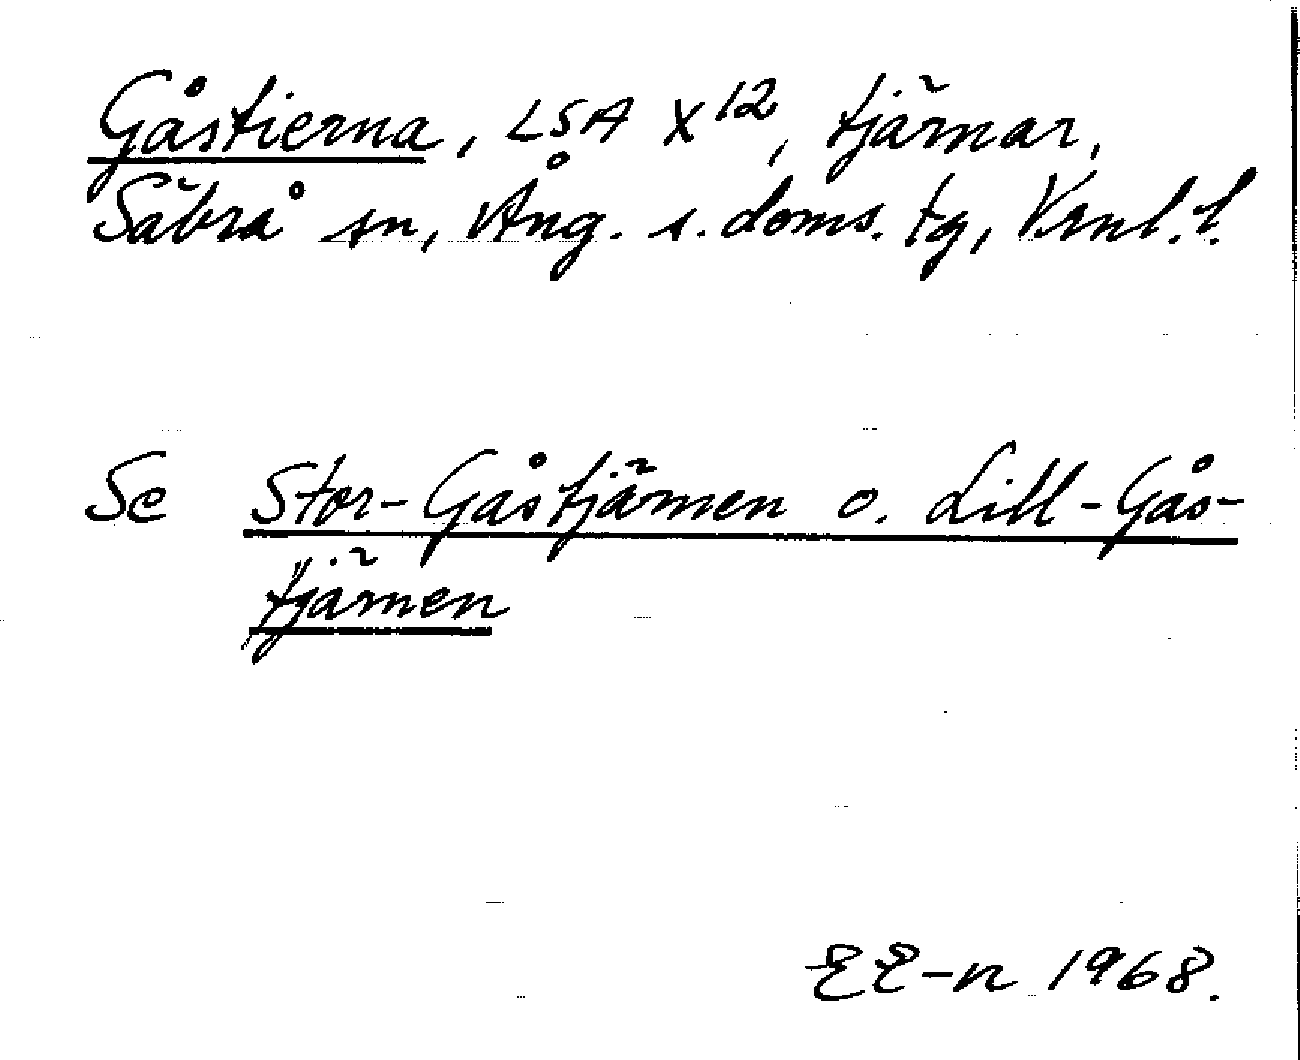 Gåstierna, LSA X 12, tjärnar,
Säbrå sn, Ång. s. doms. tg, Vrnl. l.
Se Stor-Gåstjärnen o. Lill-Gås-
tjärnen
EE-n 1968.